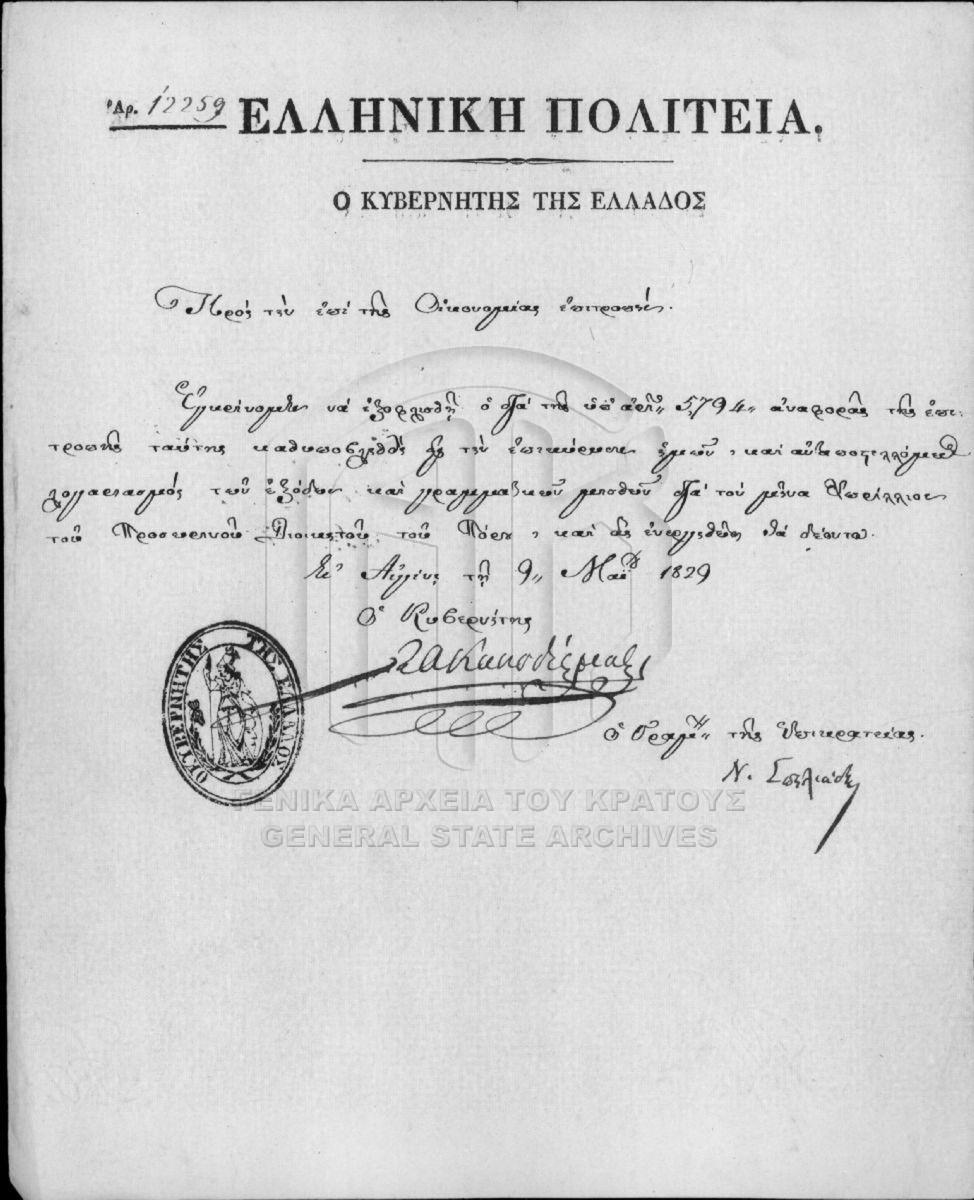 Ἀρ. 12259
ΕΛΛΗΝΙΚΗ ΠΟΛΙΤΕΙΑ.
Ο ΚΥΒΕΡΝΗΤΗΣ ΤΗΣ ΕΛΛΑΔΟΣ
Πρὸς τὴν ἐπὶ τῆς Οἰκονομίας ἐπιτροπήν.
Ἐγκρίνομεν νὰ ἐξοφληθῇ ὁ διὰ τῆς ὑπ' ἀριθ: 5794,, ἀναφορᾶς τῆς ἐπι-
τροπῆς ταύτης καθυποβληθεὶς εἰς τὴν ἐπικύρωσιν ἡμῶν, καὶ
λογαριασμὸς τῶν ἐξόδων καὶ γραμματικῶν μισθῶν διὰ τὸν μῆνα Ἀπρίλλιον
τοῦ Προσωρινοῦ Διοικητοῦ τοῦ Πόρου, καὶ ἂς ἐνεργηθῶσι τὰ δέοντα.
Ἐν Αἰγίνῃ τῇ 9,, Μαΐου 1829
Ὁ Κυβερνήτης
Ι Α Καποδίστριας
Ο ΚΥΒΕΡΝΗΤΗΣ ΤΗΣ ΕΛΛΑΔΟΣ
ὁ Γραμμ: τῆς Ἐπικρατείας.
Ν. Σπηλιάδης
ΓΕΝΙΚΑ ΑΡΧΕΙΑ ΤΟΥ ΚΡΑΤΟΥΣ
GENERAL STATE ARCHIVES